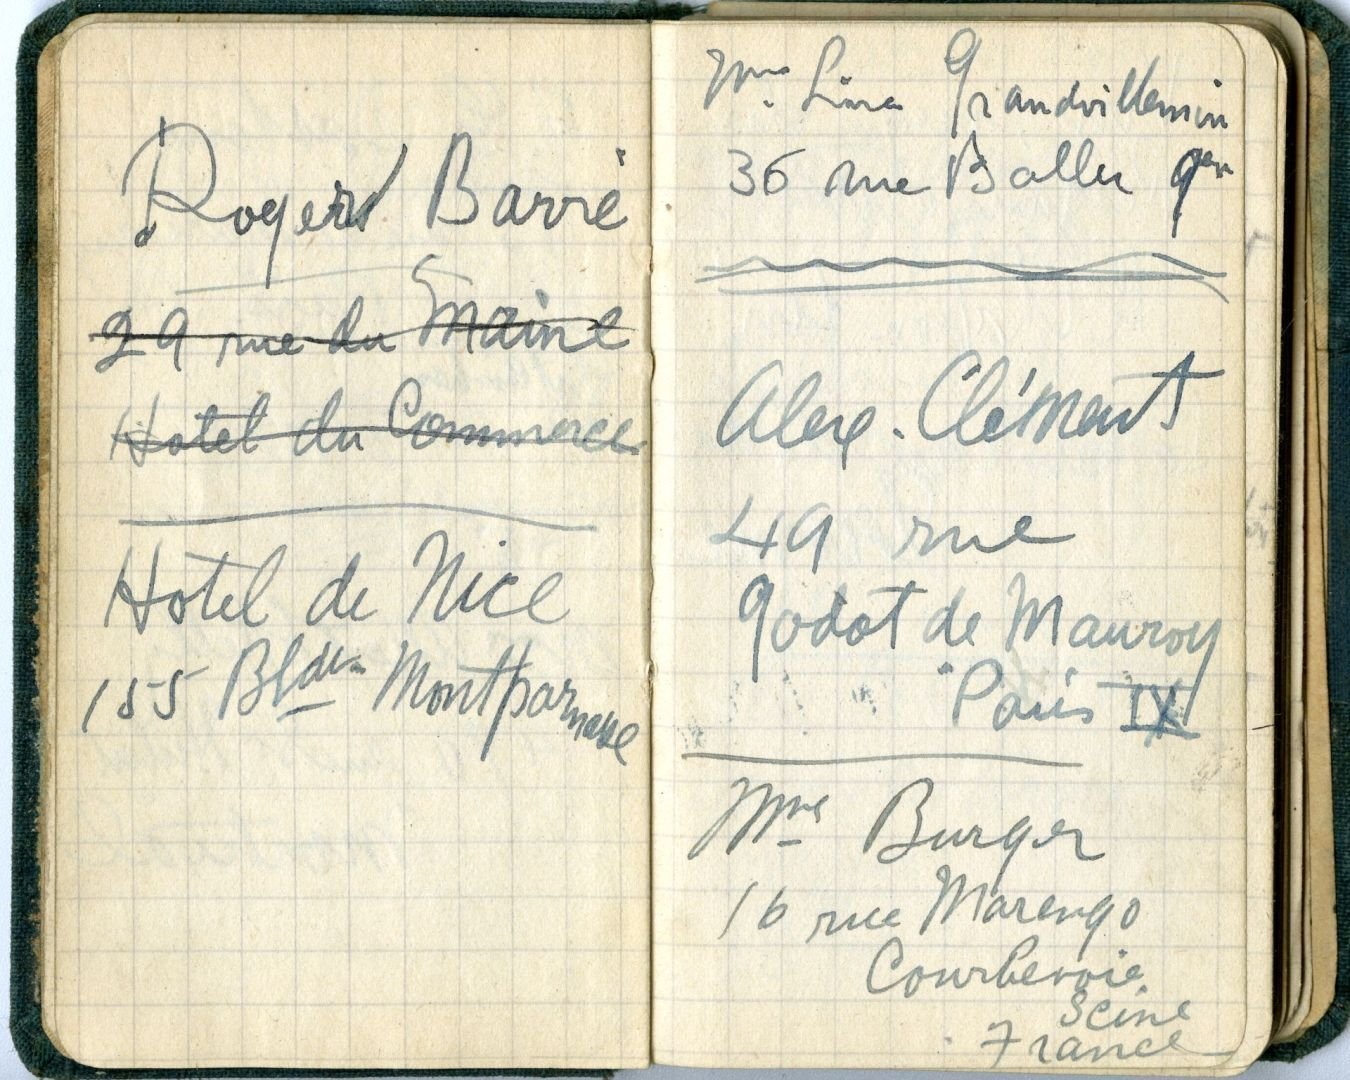 Roger Barré
29 rue du Maine
Hotel du Commerce
Hotel de Nice
155 Bld Montparnasse
Mme Lina Grandvillemin
36 rue Ballu 9em
Alex. Clément
49 rue
Godot de Mauroy
Paris IX
Mme Burger
16 rue Marengo
Courbevoie
Seine
France